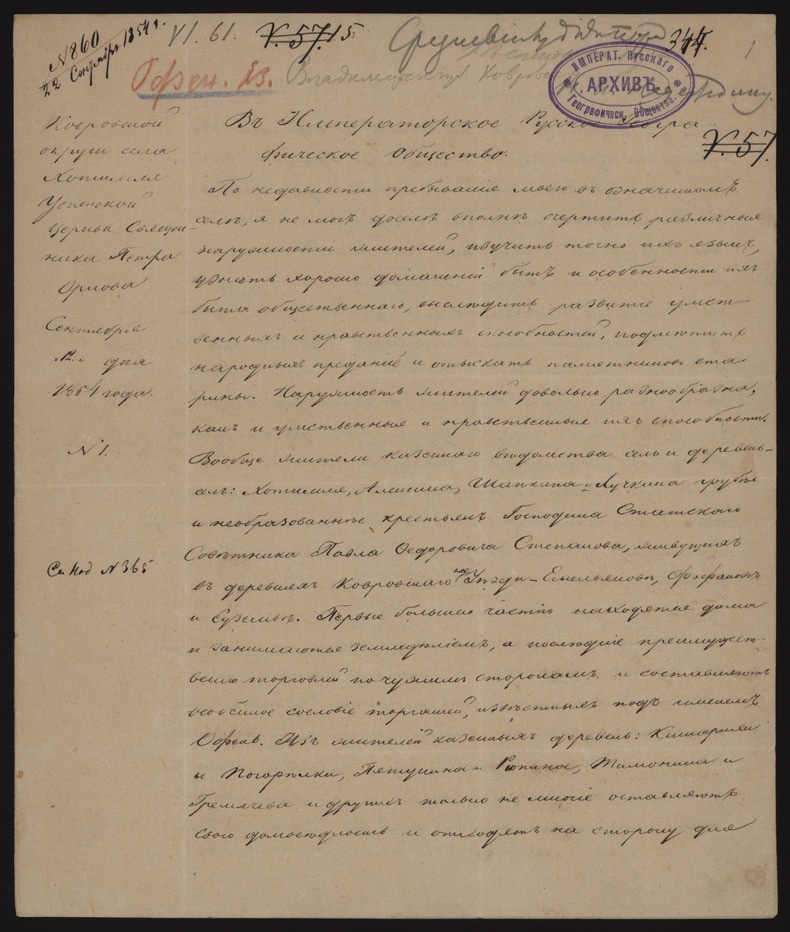 N 860
22 Сентября 1854 г.
VI. 61.
V. 57. 15
344.
1
Офен. Яз.
Владимирской Ковров
ИМПЕРАТ. РУССКАГО
АРХИВЪ
Географическ. Общества.
V. 57
Ковровской
округи села
Хотимля
Успенской
Церкви Священ-
ника Петра
Орлова
Сентября
дня
1854 года.
N 1.
N 365
Въ Императорское Русское Геогра
фическое Общество.
По недавности пребыванія моего въ означенномъ
селѣ, я не могъ доселѣ вполнѣ очертить различныя
наружности жителей, изучить точно ихъ языкъ,
узнать хорошо домашній бытъ и особенности ихъ
быта общественнаго, выслѣдить развитіе умст-
венныхъ и нравственныхъ способностей,
народныхъ преданій и отыскать памятниковъ ста
рины. Наружность жителей довольно разнообразна,
какъ и умственныя и нравственныя ихъ способности.
Вообще жители казеннаго вѣдомства селъ и деревень-
селъ: Хотимля, Алексина, Шапкина и Лучкина грубѣе
и необразованнѣе крестьянъ Господина Статскаго
Совѣтника Павла Ѳедоровича Степанова, живущихъ
въ деревняхъ Ковровскаго Уѣзда-Емельяновѣ,
и Первые большею частію находятся дома
и занимаются земледѣліемъ, а послѣдніе преимущест-
венно торговлей по чужимъ сторонамъ и составляютъ
особенное сословіе торгашей, извѣстныхъ подъ именемъ
Офень. Изъ жителей казенныхъ деревень:
и Погорѣлки, Пѣтушина и Тимонина и
Гремячева и другихъ только не многіе оставляютъ
свою домосѣдлость и отходятъ на сторону для